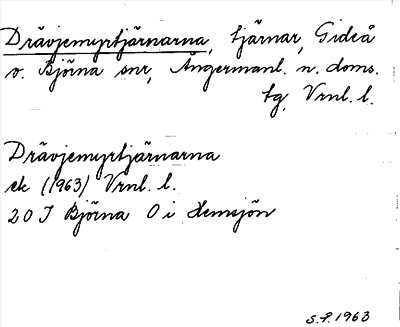 Drävjemyrtjärnarna, tjärnar, Gideå
o. Björna snr, Ångermanl. n. doms.
tg, Vrnl. l.
Drävjemyrtjärnarna
ek (1963) Vrnl. l.
20 J Björna O i Hemsjön
S.P. 1963